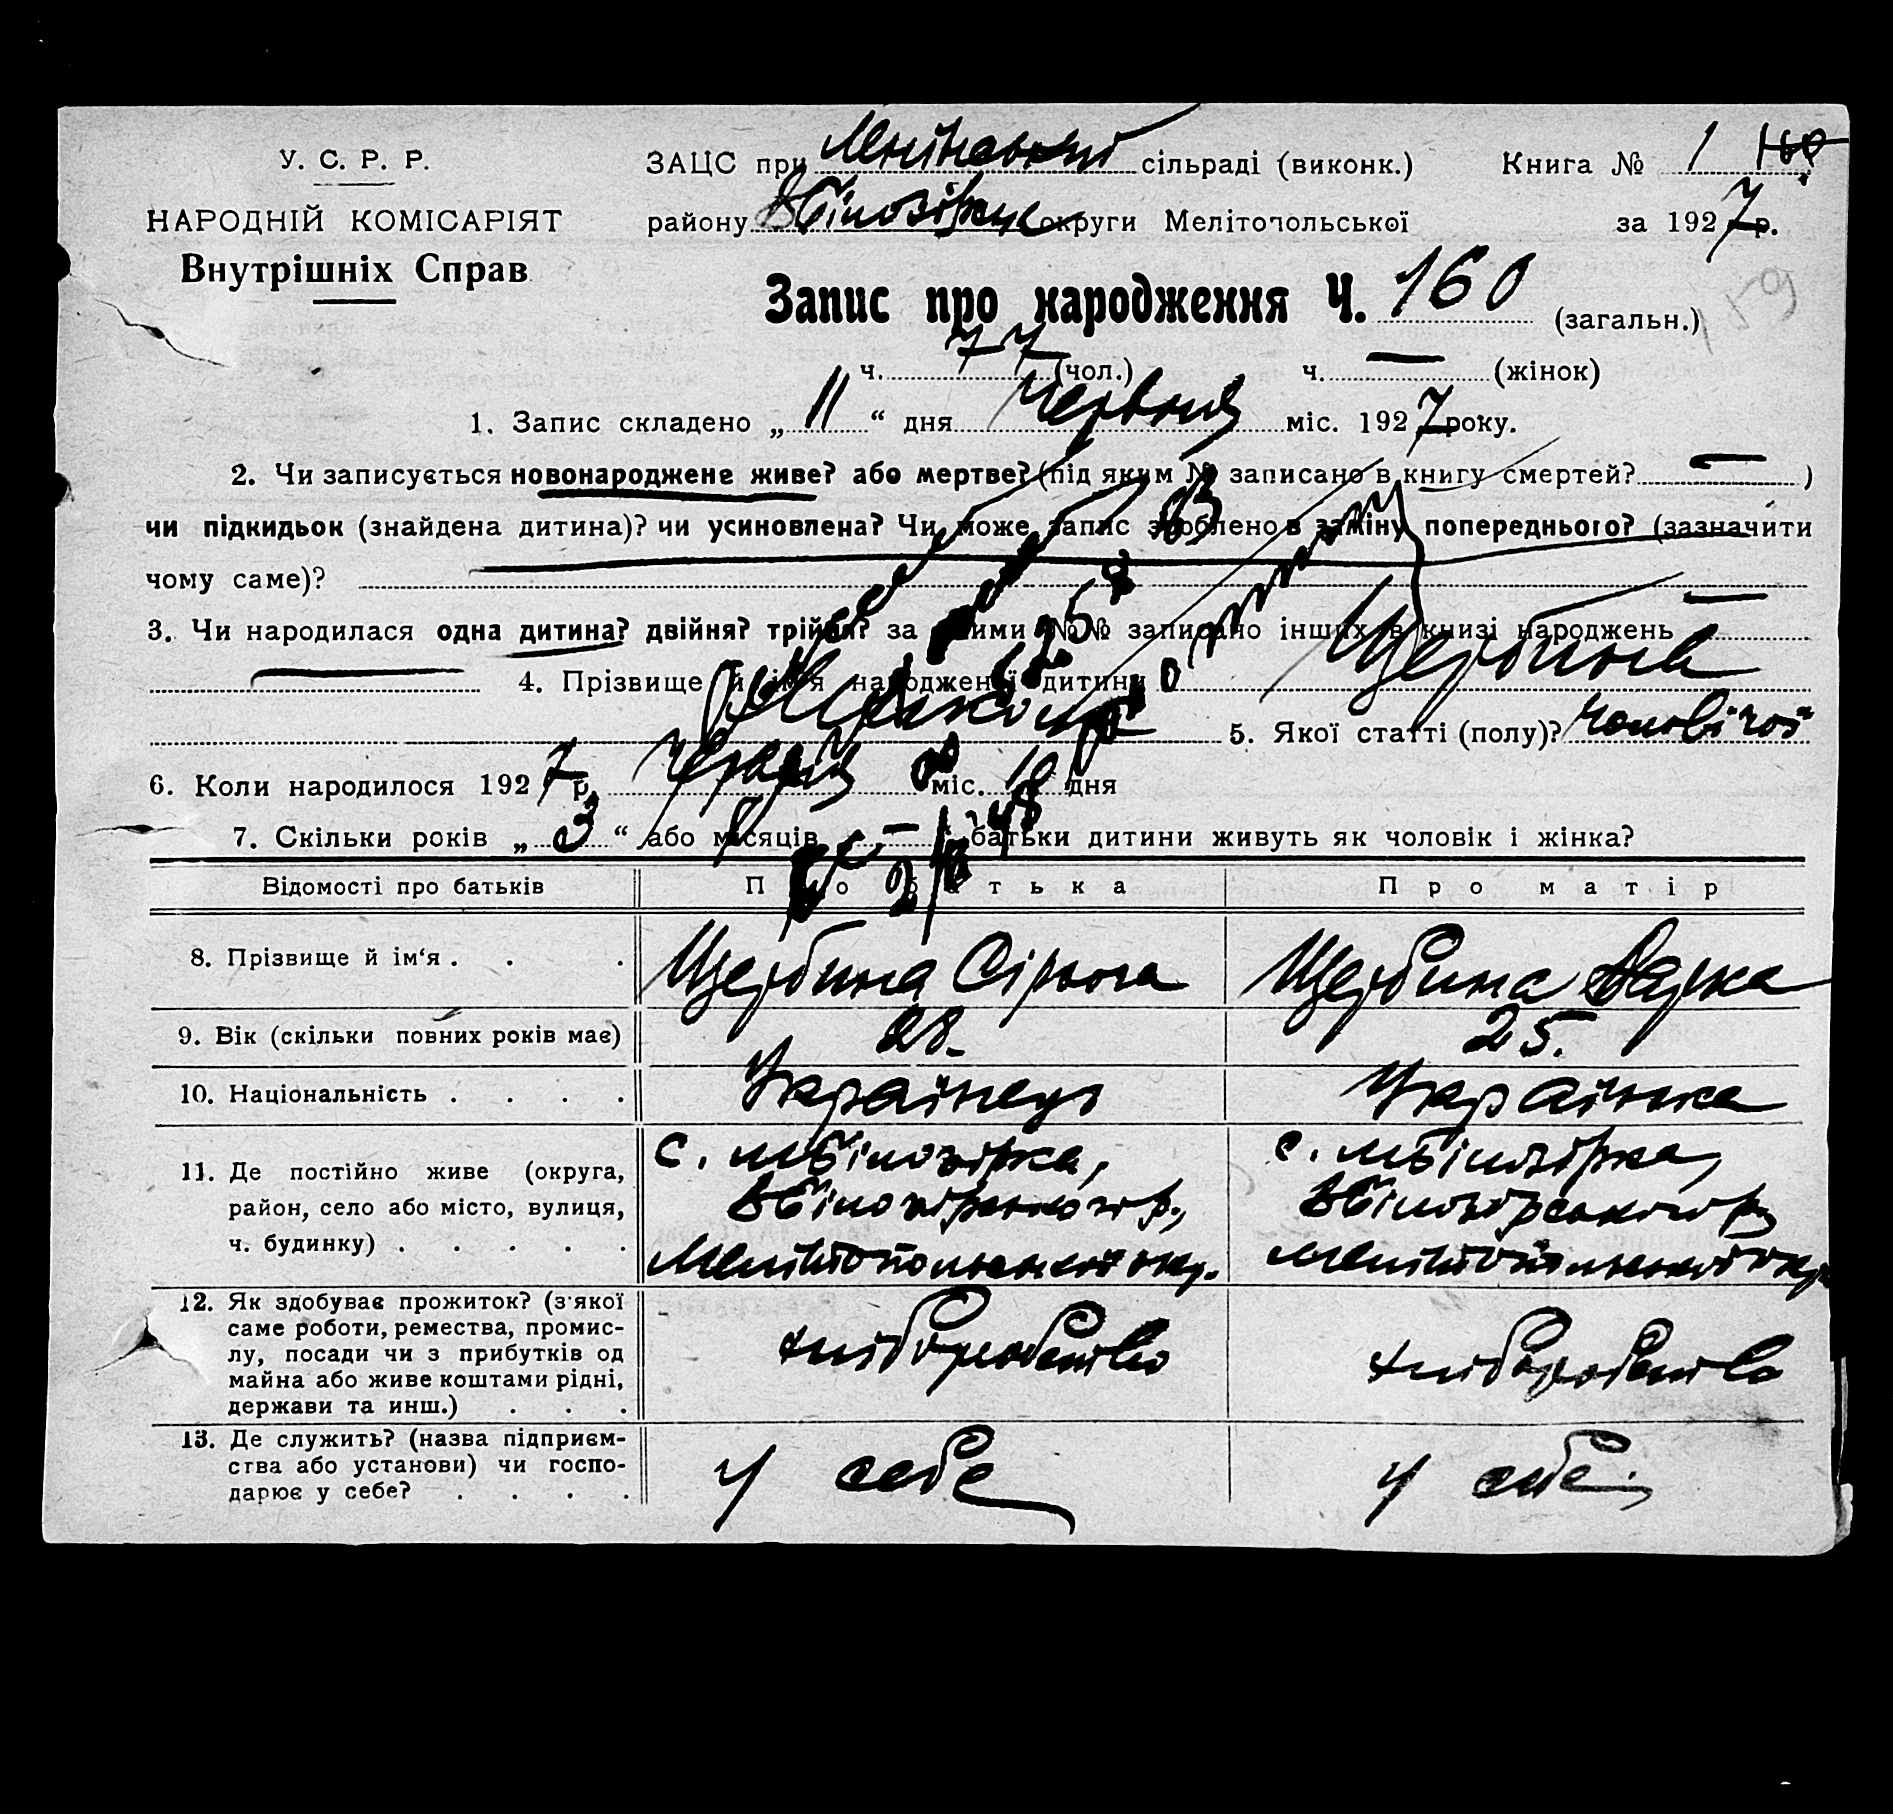 У. С. Р. Р.
НАРОДНІЙ КОМІСАРІЯТ
Внутрішніх Справ
ЗАЦС при Ленінській сільраді (виконк.) Книга № 1 160
району ВБілозірка округи Мелітопольської за 1927 р.
Запис про народження Ч. 160 (загальн.)
159
ч. 77 (чол.) ч. — (жінок)
1. Запис складено „ 11 “ дня Червня міс. 1927 року.
2. Чи записується новонароджене живе? або мертве? (під яким № записано в книгу смертей? — )
чи підкидьок (знайдена дитина)? чи усиновлена? Чи може запис зроблено в заміну попереднього? (зазначити
чому саме)?
3. Чи народилася одна дитина? двійня? трійня? за якими №№ записано інших в книзі народжень —
4. Прізвище й ім'я народженої дитини Щербина
Микола 5. Якої статті (полу)? чоловічої
6. Коли народилося 1927 р. Червня міс. 10 дня
7. Скільки років „ 3 “ або місяців „ — “ батьки дитини живуть як чоловік і жінка?
Відомості про батьків Про батька Про матір
8. Прізвище й ім‘я . . . Щербина Сірьога Щербина Варка
9. Вік (скільки повних років має) 28. 25.
10. Національність . . . . Українець Українка
11. Де постійно живе (округа, с. мБілозірка, с. мБілозірка,
район, село або місто, вулиця, ВБілозірського р., ВБілозірського р,
ч. будинку) . . . . . Мелітопольської окр. Мелітопольської окр.
12. Як здобуває прожиток? (з'якої
саме роботи, ремества, промис-
лу, посади чи з прибутків од хліборобство хліборобство
майна або живе коштами рідні,
держави та инш.) . . .
13. Де служить? (назва підприєм-
ства або установи) чи госпо- у себе у себе
дарює у себе? . . . .